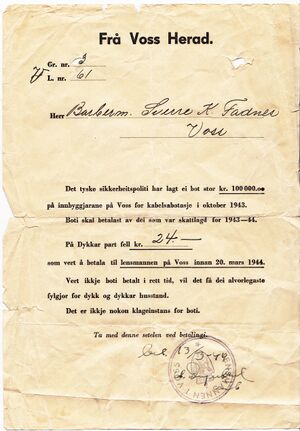 Frå Voss Herad.
Gr. nr. 3
L. nr. 61
Herr Barberm. Sverre K. Fadnes
Voss
Det tyske sikkerheitspoliti har lagt ei bot stor kr. 100 000.00
på innbyggjarane på Voss for kabelsabotasje i oktober 1943.
Boti skal betalast av dei som var skattlagd for 1943—44.
På Dykkar part fell kr. 24.—
som vert å betala til lensmannen på Voss innan 20. mars 1944.
Vert ikkje boti betalt i rett tid, vil det få dei alvorlegaste
fylgjor for dykk og dykkar husstand.
Det er ikkje nokon klageinstans for boti.
Ta med denne setelen ved betalingi.
13/3-44
LENSMANNEN I VOSS